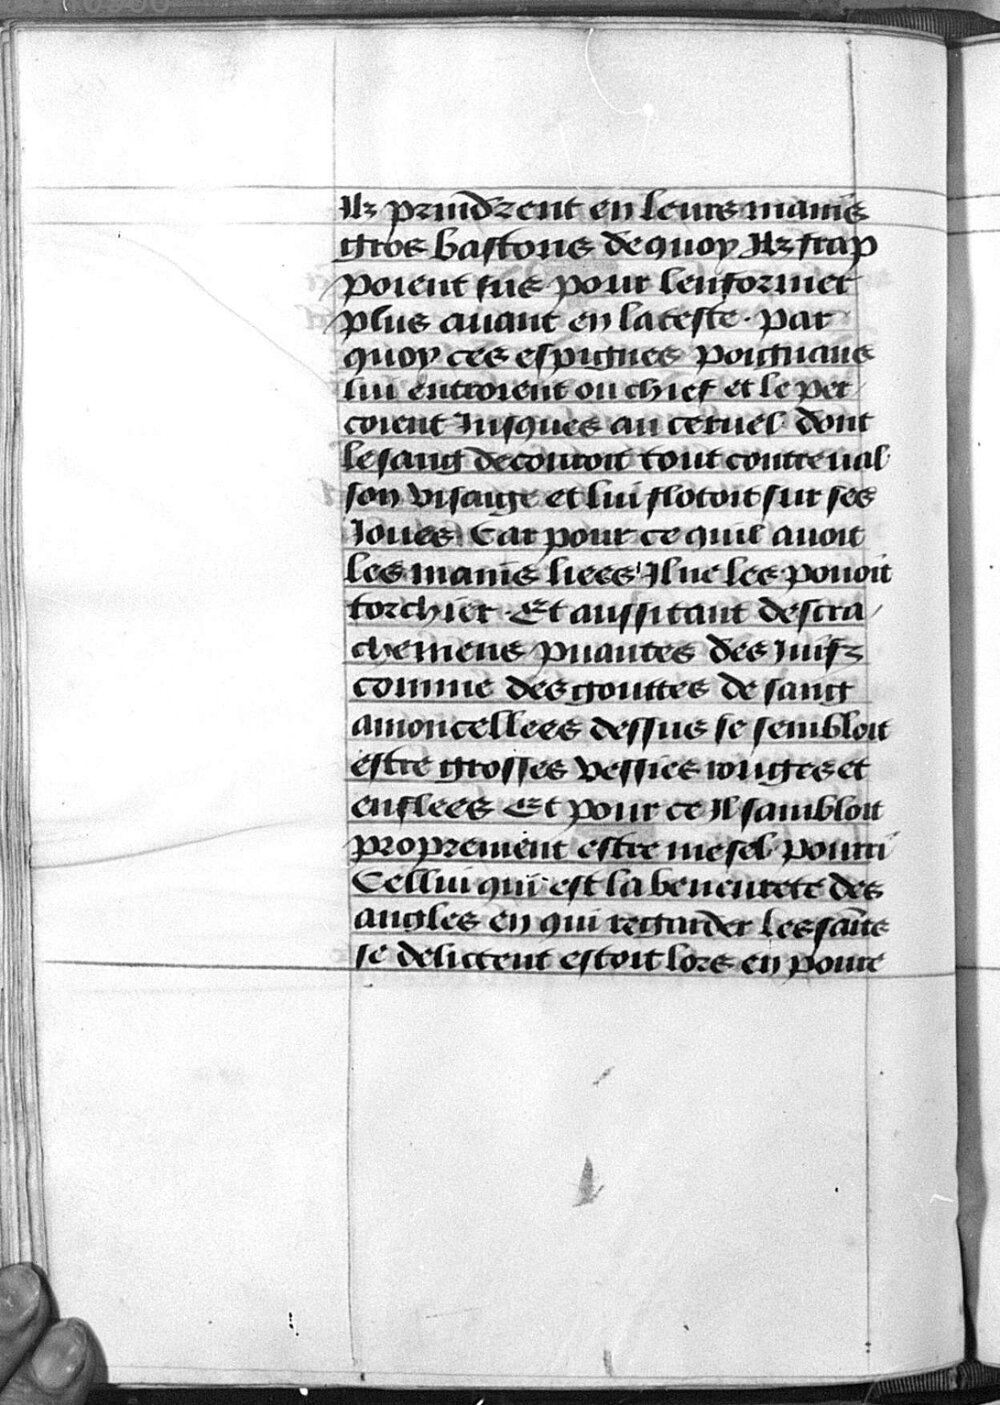 Ilz prindrent en leurs mains
gros bastons de quoy Ilz frap
poient sus pour lenformer
plus auant en la teste. Par
quoy ces espignes poignans
lui entroient ou chief et le per
coient Iusques au ceruel dont
le sang decouroit tout contreual
son visaige et lui flotoit sur ses
Ioues. Car pour ce quil auoit
les mains liees Il ne les pouoit
torchier. Et aussi tant descra
chemens puantes des iuifz
comme des gouttes de sang
amoncellees dessus se sembloit
estre grosses vessies rouges et
enflees Et pour ce Il sambloit
proprement estre mesel pourri
Cellui qui est la beneurete des
angles en qui regarder les sains
se delictent estoit lors en poure